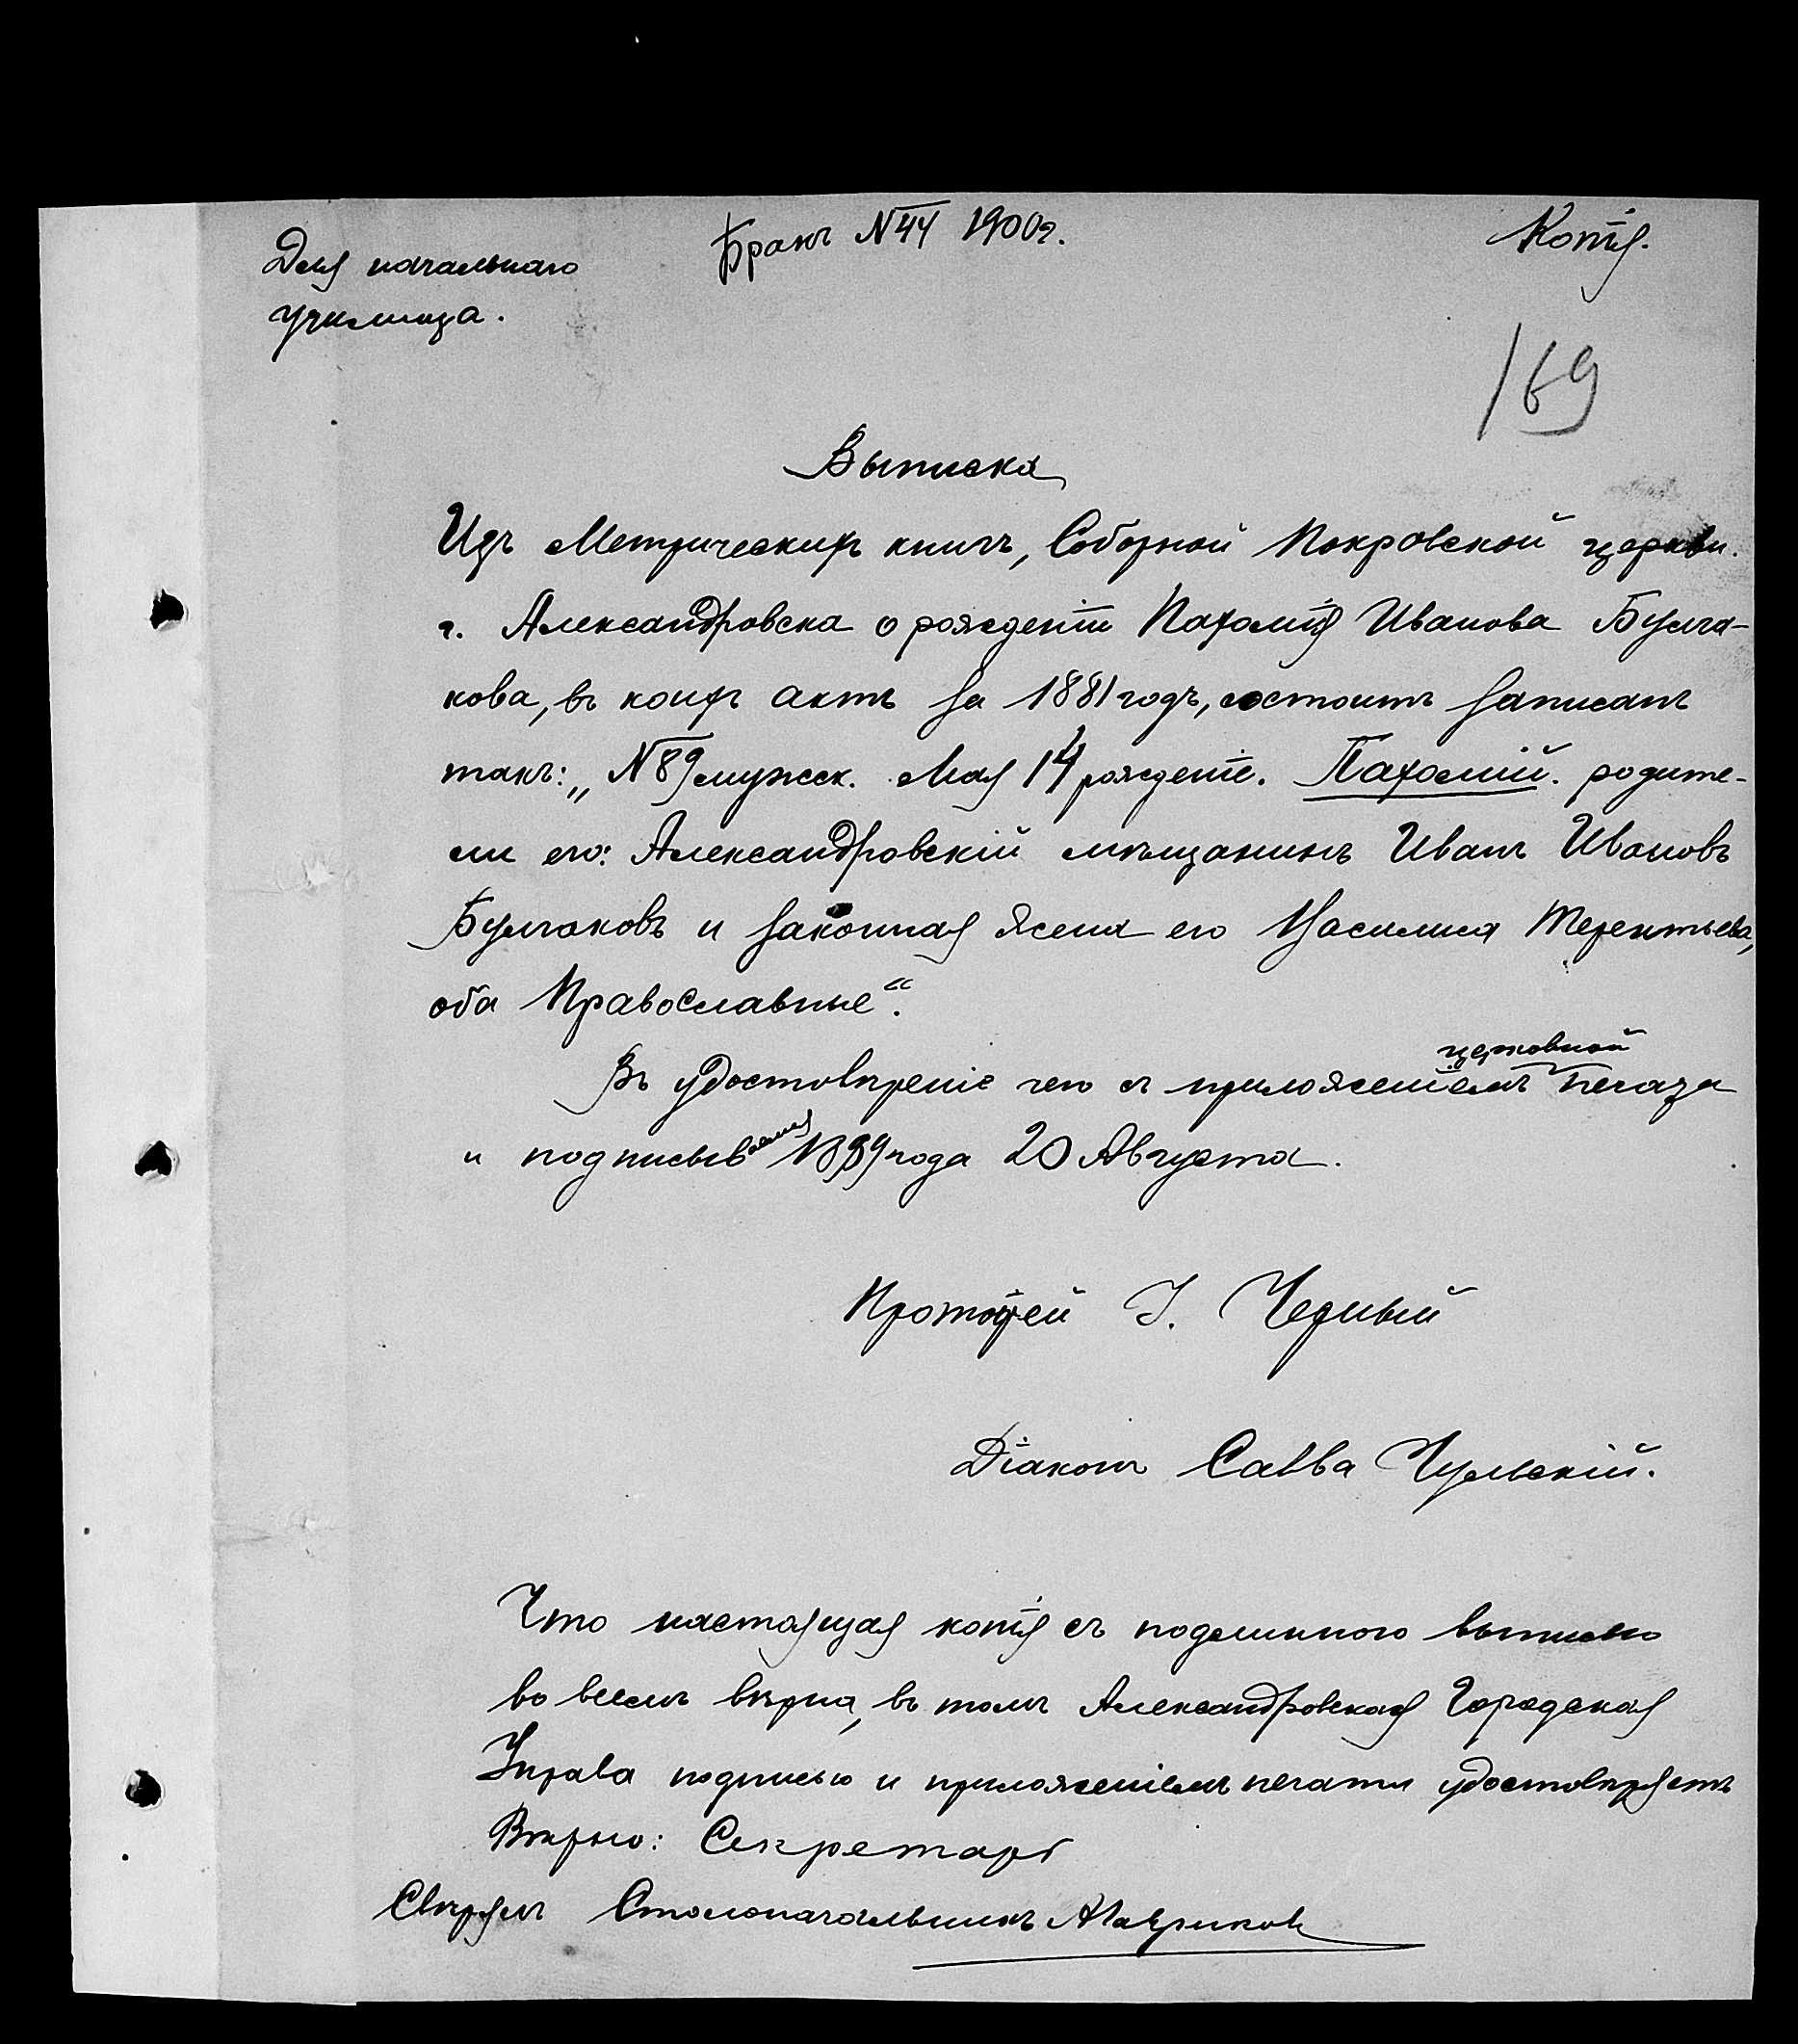 Для начальнаго
училища.
Бракъ №44 1900г.
Копія.
169
Выписка
Изъ Метрическихъ книгъ, Соборной Покровской церкви
г. Александровска о рожденіи Пахомія Ивана Булга-
кова, въ коихъ актъ за 1881 годъ, состоитъ записанъ
такъ: „№89 мужск. Мая 14 рожденіе. Пахомій. родите-
ли его: Александровскій мѣщанинъ Иванъ Ивановъ
Булгаковъ и законная жена его Василиса Терентьева,
оба Православные“.
Въ удостовѣреніе чего съ приложеніемъ церковной печати
и подписываемся 1889 года 20 Августа.
Протоіерей І. Черный
Діаконъ Савва Чульскій.
Что настоящая копія съ подлинного выписью
во всемъ вѣрна, въ томъ Александровская Городская
Управа подписью и приложеніемъ печати удостовѣряетъ
Вѣрно: Секретарь
Свѣрялъ Столоначальникъ